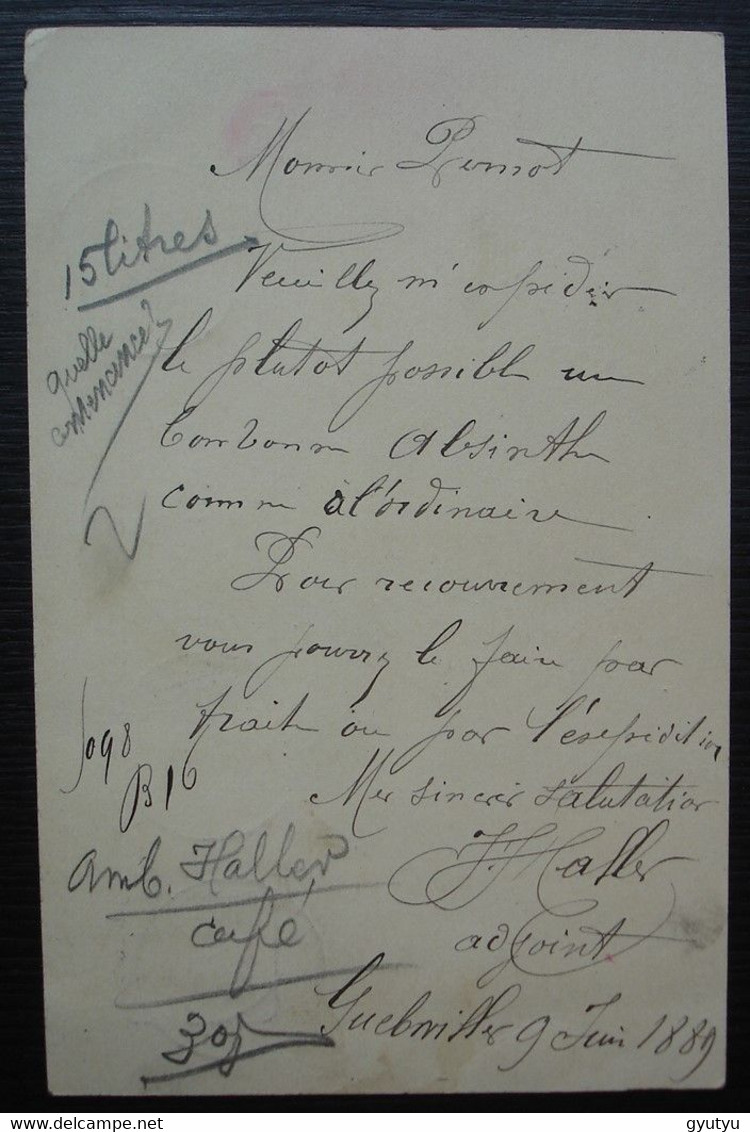 Monsieur Pernot
15 litres
Veuillez m'expédier
quelle
contenance?
le plutot possible un
bonbonne absinthe
comme à l'ordinaire
Pour recouvrement
vous pourrez le faire par
traite ou par l'éxspédition
B16
Mes sincères salutation
amb. Haller
J. Haller
café
adjoint
Guebwiller 9 Juin 1889
delcampe.net
gyutyu